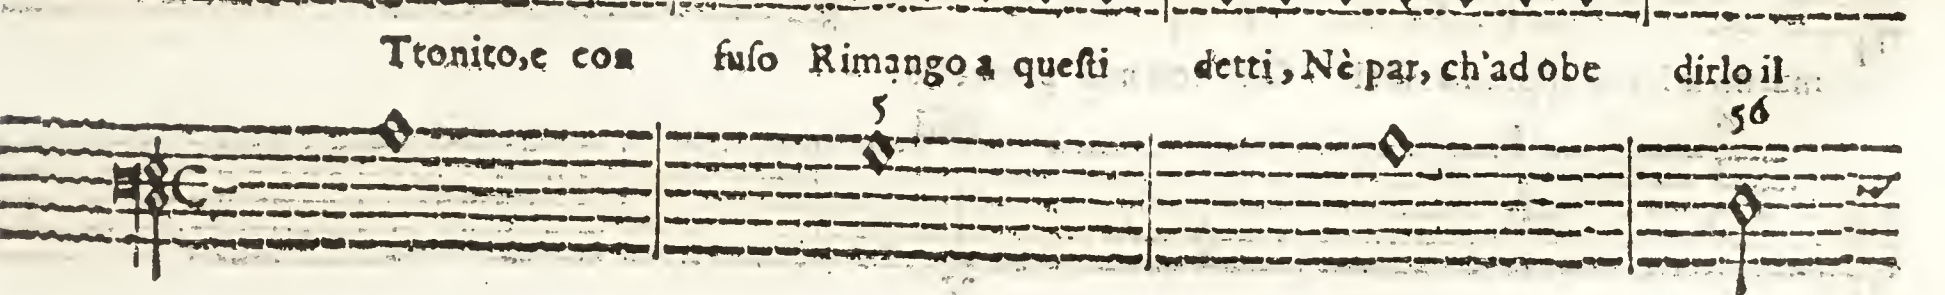 Ttonito,e con fuſo Rimango a queſti detti, Nè par, ch'ad obe dirlo il
5 56